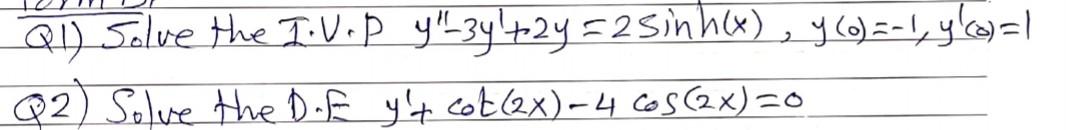 Q1) Solve the I.V.P y"-3y'+2y=2sinh(x), y(0)=-1, y'(0)=1
Q2) Solve the D.E y'+ cot(2x)-4 cos(2x)=0